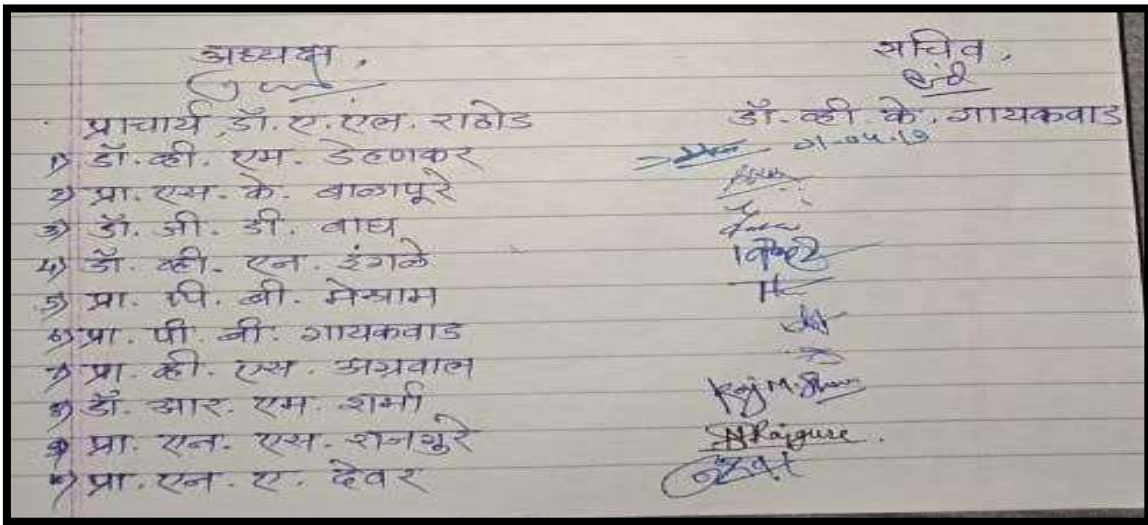 अध्यक्ष, सचिव,
प्राचार्य डॉ. ए. एल. राठोड डॉ. व्ही के. गायकवाड
१) डॉ. व्ही. एम. डेहणकर
२) प्रा. एस. के. बाळापूरे
३) डॉ. जी. डी. वाघ
४) डॉ. व्ही. एन. इंगळे
५) प्रा. पी. बी. मेश्राम
६) प्रा. पी. बी. गायकवाड
७) प्रा. व्ही. एस. अग्रवाल
८) डॉ. आर. एम. शर्मा
९) प्रा. एन. एस. राजगूरे NRajgure.
१०) प्रा. एन. ए. देवर